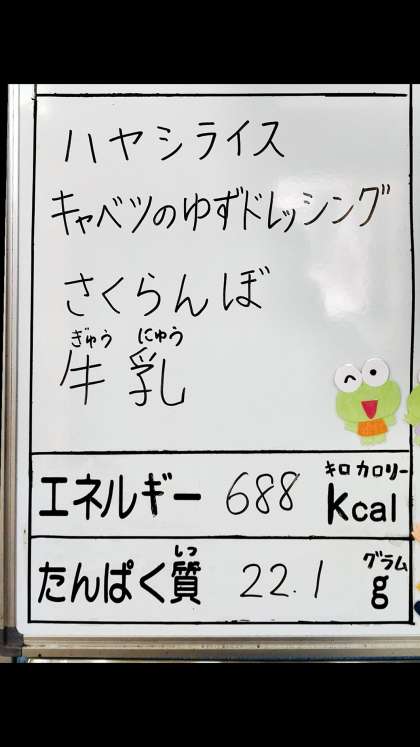 ハヤシライス
キャベツのゆずドレッシング
さくらんぼ
ぎゅう にゅう
牛乳
キロカロリー
エネルギー 688 kcal
しつ グラム
たんぱく質 22.1 g